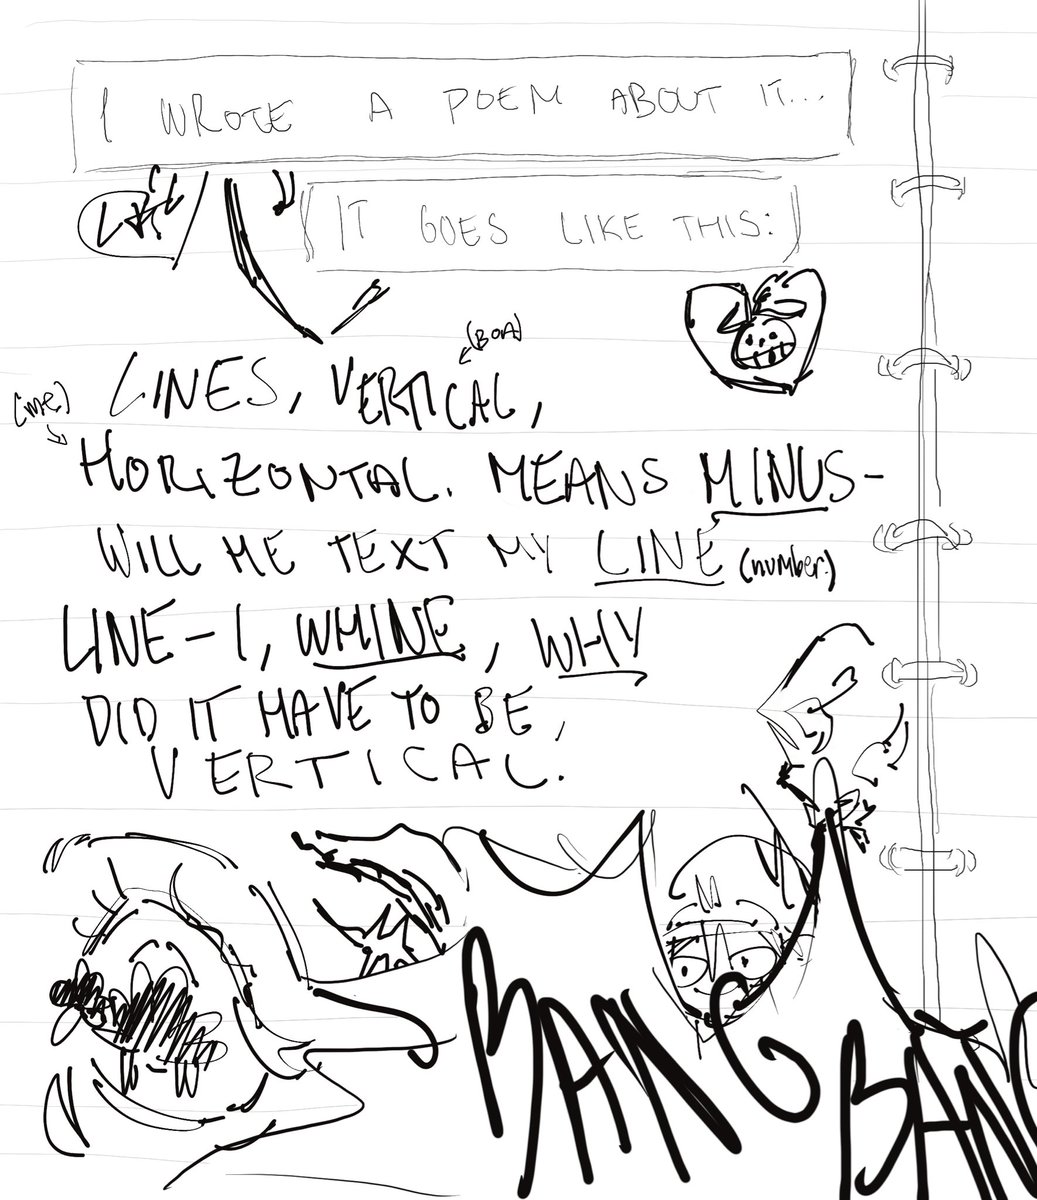 I WROTE A POEM ABOUT IT...
IT GOES LIKE THIS:
(BOA)
LINES, VERTICAL,
(me)
HORIZONTAL. MEANS MINUS-
WILL HE TEXT MY LINE (number)
LINE-1, WHINE, WHY
DID IT HAVE TO BE,
VERTICAL.
BANG
BANG